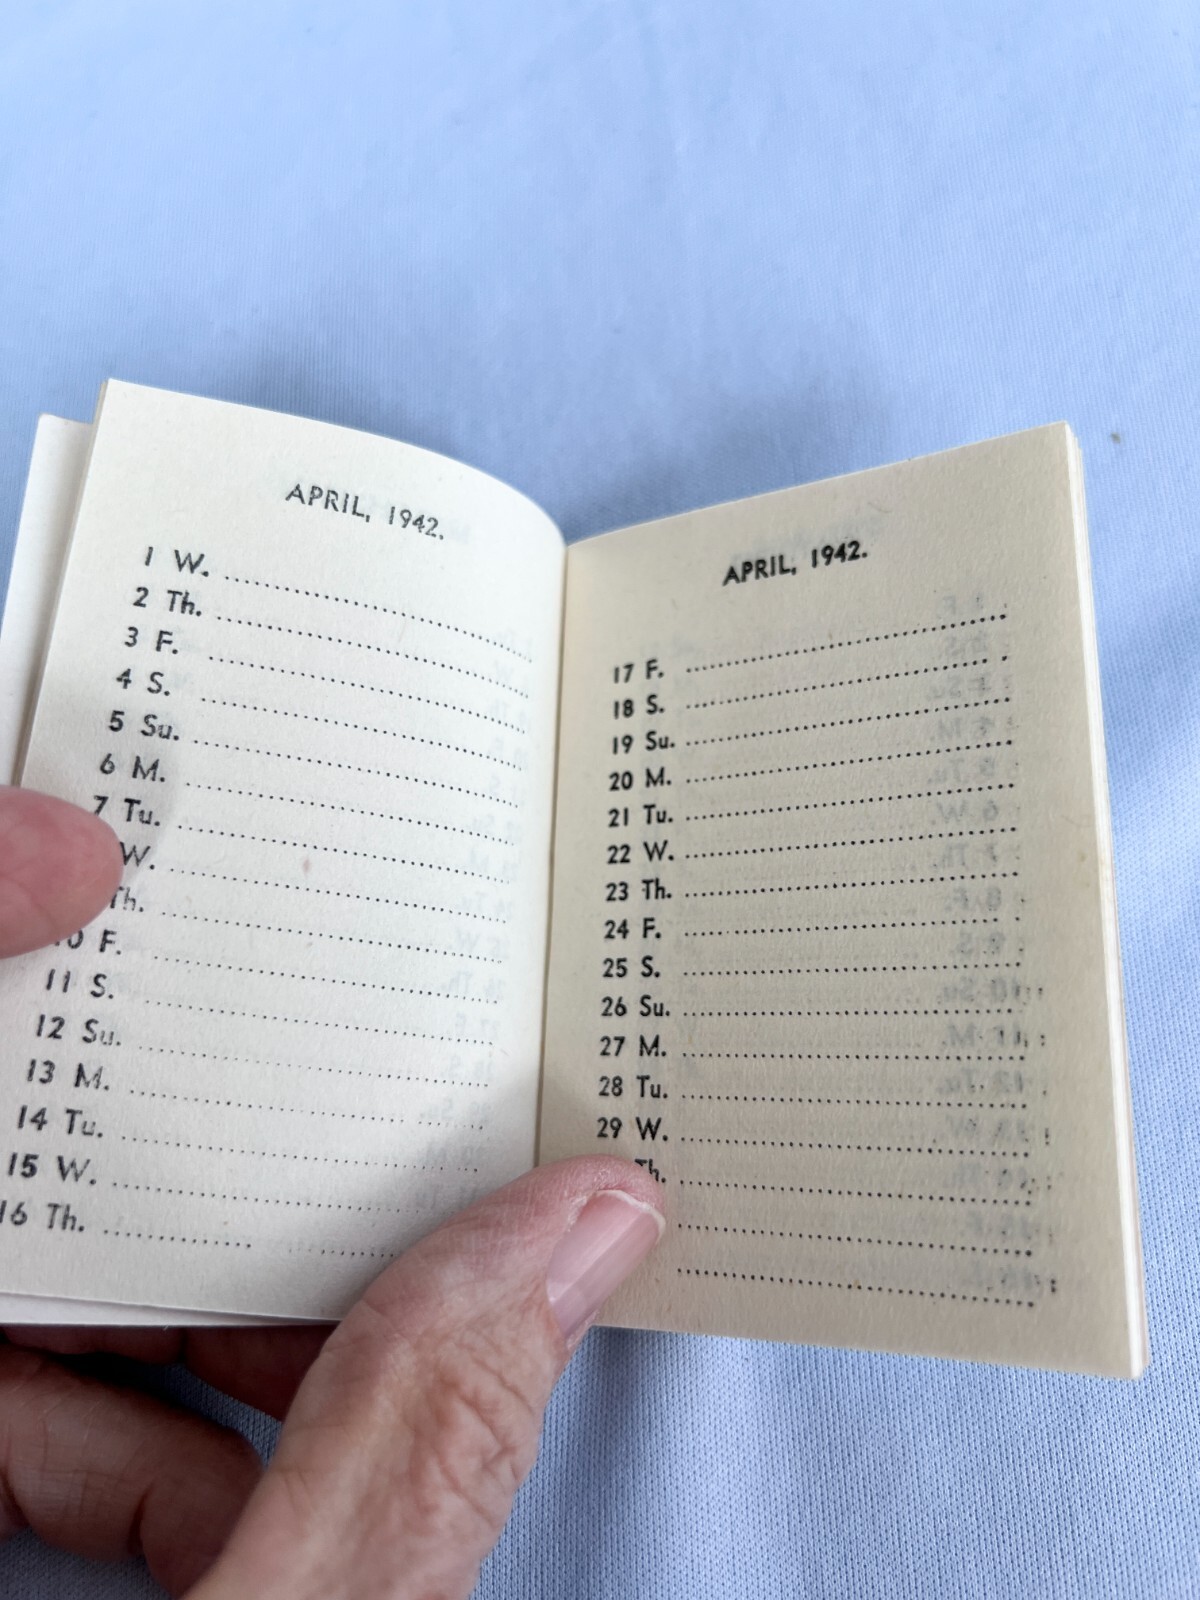 APRIL, 1942.
1 W.
2 Th.
3 F.
4 S.
5 Su.
6 M.
7 Tu.
W.
Th.
10 F.
11 S.
12 Su.
13 M.
14 Tu.
15 W.
16 Th.
APRIL, 1942.
17 F.
18 S.
19 Su.
20 M.
21 Tu.
22 W.
23 Th.
24 F.
25 S.
26 Su.
27 M.
28 Tu.
29 W.
Th.